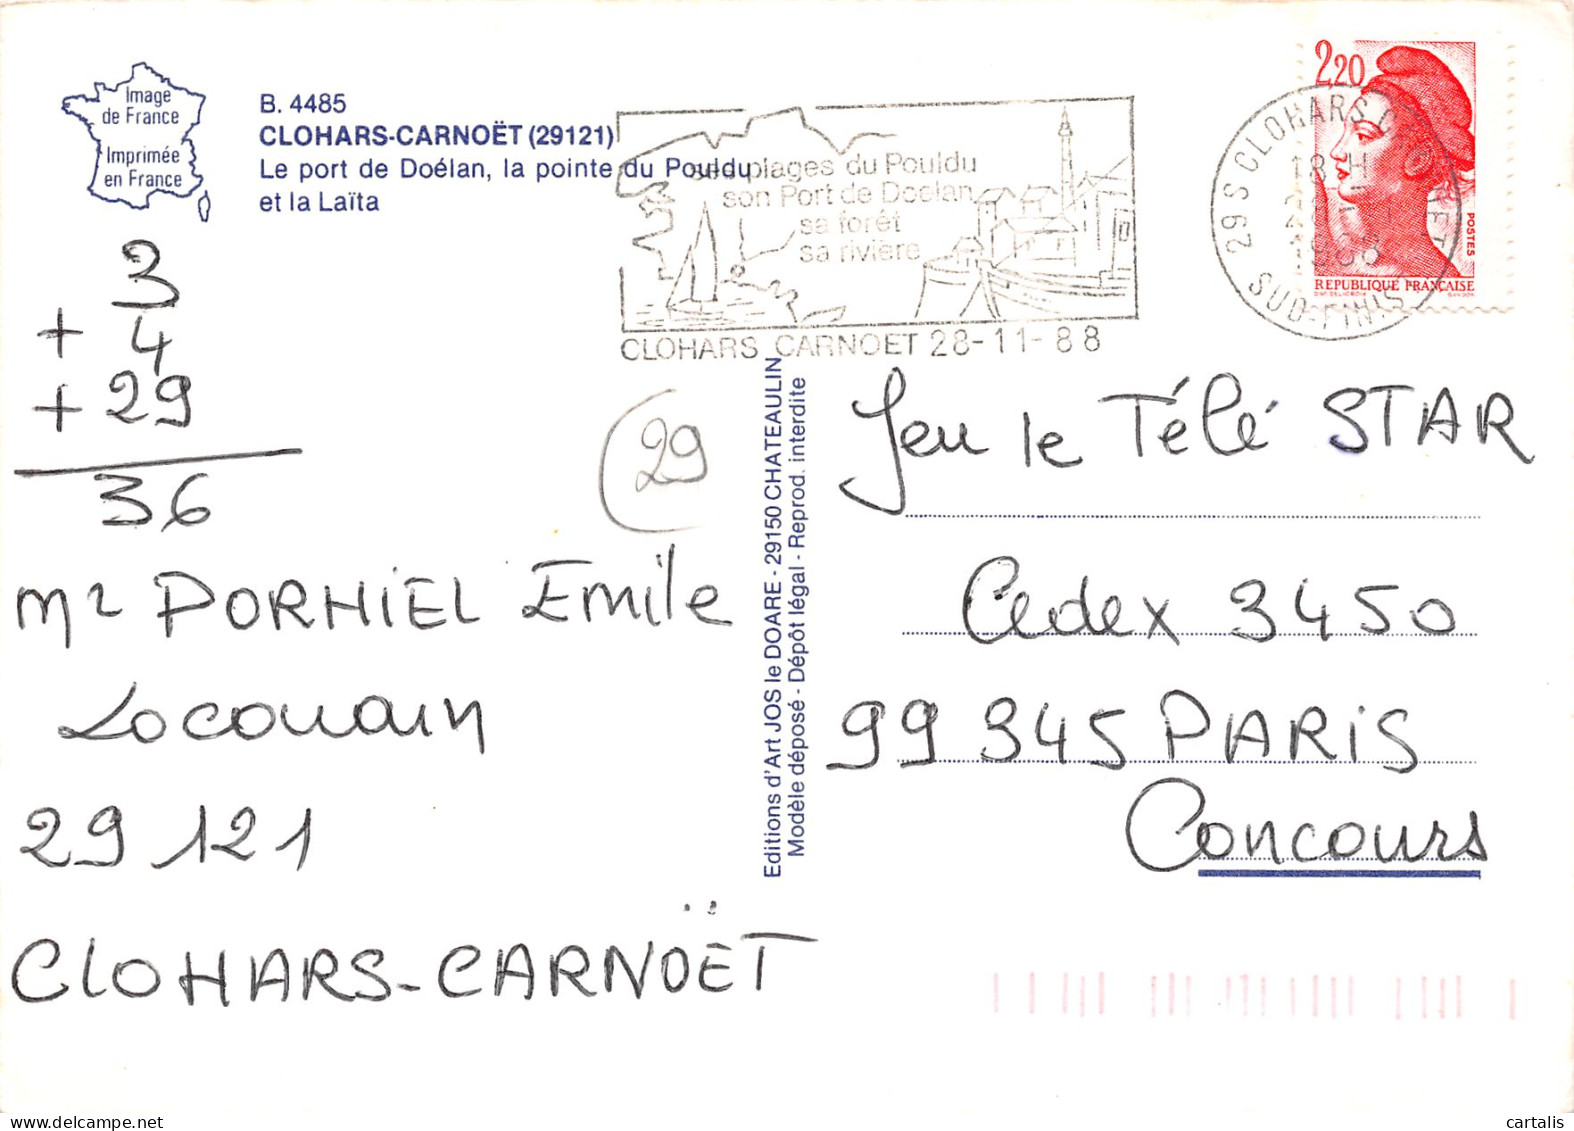 Image
de France
Imprimée
en France
B. 4485
CLOHARS-CARNOËT (29121)
Le port de Doélan, la pointe du Pouldu
et la Laïta
ses plages du Pouldu
son Port de Doelan
sa forêt
sa rivière
CLOHARS CARNOET 28-11-88
2,20
POSTES
REPUBLIQUE FRANÇAISE
29 S CLOHARS CARNOET
18 H
1988
SUD-FINIS
3
+ 4
+ 29
36
29
Mr PORHIEL Emile
Locouarn
29 121
CLOHARS-CARNOËT
Editions d'Art JOS le DOARE - 29150 CHATEAULIN
Modèle déposé - Dépôt légal - Reprod. interdite
Jeu le Télé STAR
Cedex 3450
99 345 PARIS
Concours
cartalis
delcampe.net